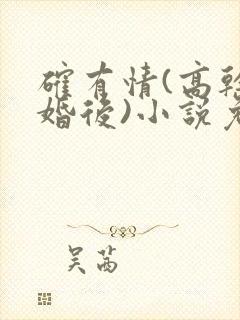 確有情(高幹
婚後)小說
吴茜